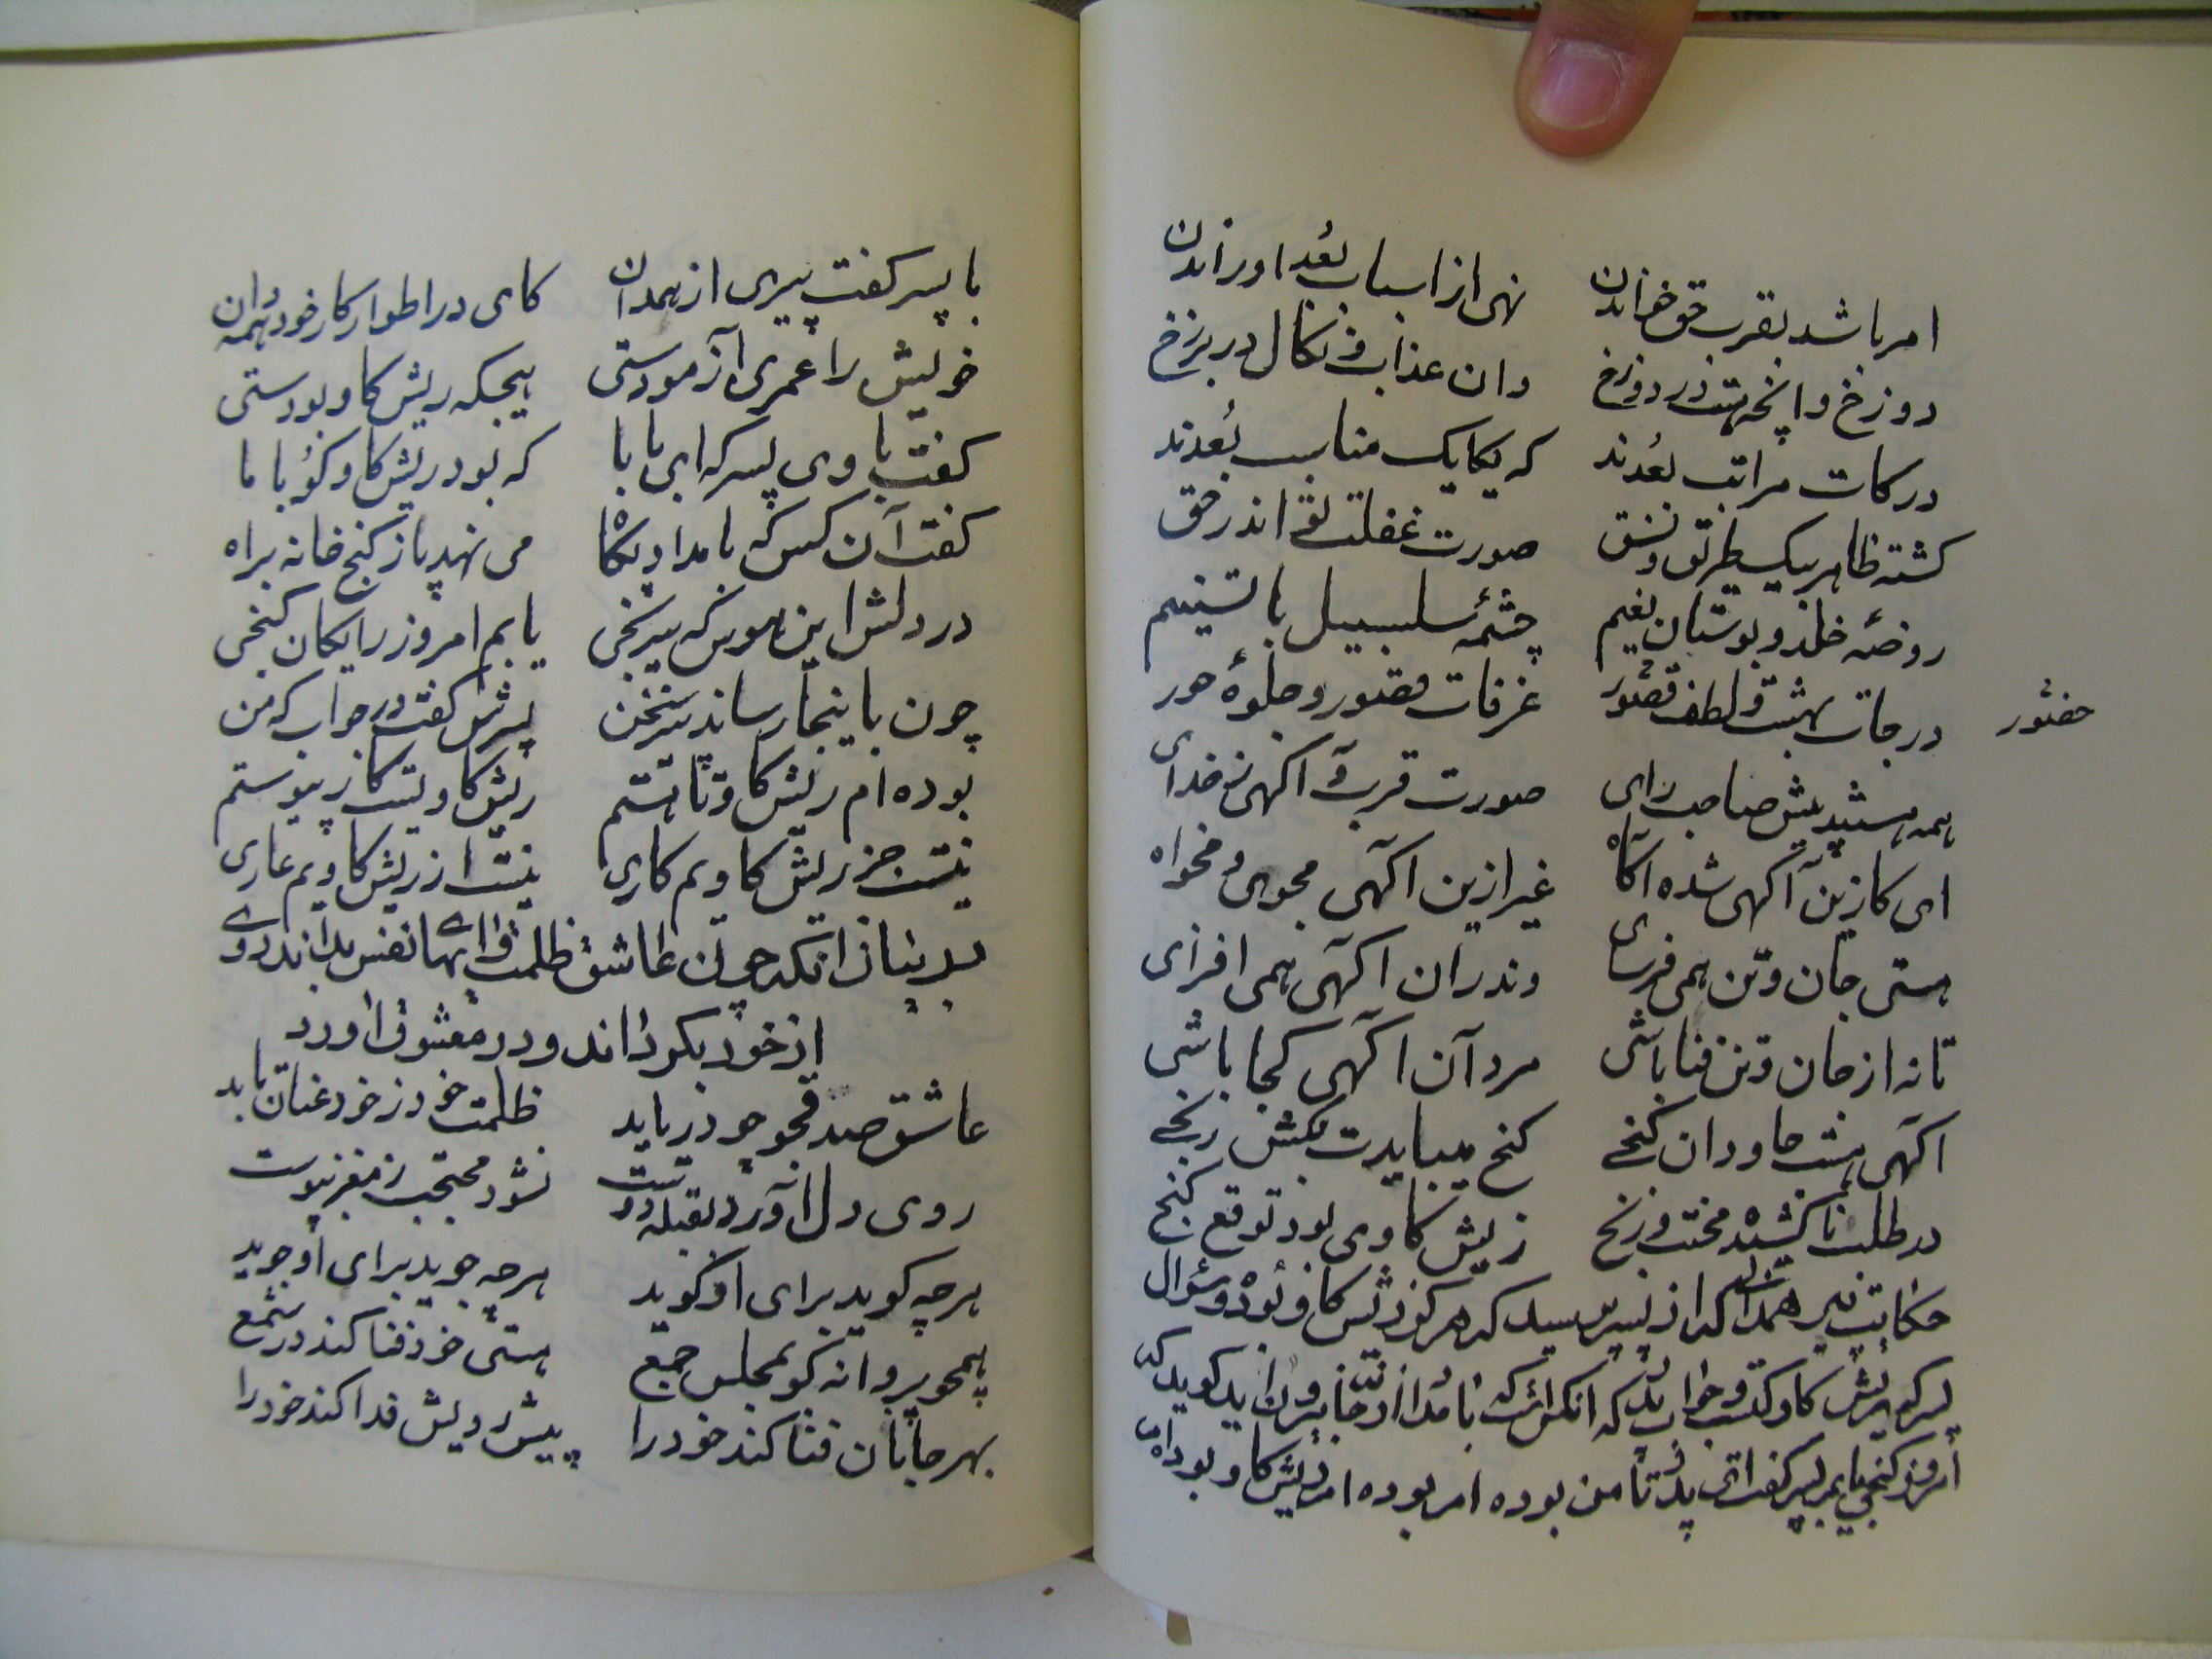 امر باشد بقرب حق خواندن نهی از اسباب بُعد او راندن
دوزخ وانچه هست در دوزخ وان عذاب و نکال در برزخ
درکات مراتب بُعدند که یکایک مناسب بُعدند
کشته ظاهر بیک طریق و نسق صورت غفلت تو اندر حق
روضهٔ خلد و بوستان نعیم چشمهٔ سلسبیل با تسنیم
درجات بهشت و لطف قصور غرفات قصور و جلوهٔ حور
حضور
همه هستند پیش صاحب رای صورت قرب و آکهی ز خدای
ای کازین آکهی شده آکاه غیر ازین آکهی مجوی و مخواه
هستی جان و تن همی فرسای وندران آکهی همی افزای
تا نه از جان و تن فنا باشی مرد آن آکهی کجا باشی
آکهی هست جاودان کنجی کنج میبایدت بکش رنجی
در طلب ناکشیده محنت و رنج ز ریش کاوی بود توقع کنج
حکایت پیر همدانی که از پسر پرسید که هرکز ریش کاو بوده و سؤال
پسر که ریش کاو کیست و جواب پدر که آنکس است که بامداد از خانه بیرون آید کوید که
امروز کنجی یابم پسر کفت ای پدر تا من بوده ام بوده ام ریش کاو بوده ام
با پسر کفت پیری از همدان کای در اطوار کار خود همه دان
خویش را عمری آزمودستی هیچکه ریش کاو بودستی
کفت با وی پسر که ای بابا که بود ریش کاو کو با ما
کفت آن کس که بامداد پکاه می نهد پا ز کنج خانه براه
در دلش این هوس که بیرنجی یابم امروز رایکان کنجی
چون باینجا رساند پیر سخن پسرش کفت در جواب که من
بوده ام ریش کاو تا هستم ریش کاویست کار پیوستم
نیست جز ریش کاویم کاری نیست از ریش کاویم عاری
در بیان آنکه چون عاشق ظلمت و ابهی نفس بداند روی
از خود بکرداند و در معشوق آورد
عاشق صدق جو چو دریابد ظلمت خود ز خود عنان تابد
روی دل آورد بقبله دوست نشود محتجب ز مغز بپوست
هرچه کوید برای او کوید هرچه جوید برای او جوید
همچو پروانه کو بمجلس جمع هستی خود فنا کند در شمع
بهر جانان فنا کند خود را پیش رویش فدا کند خود را